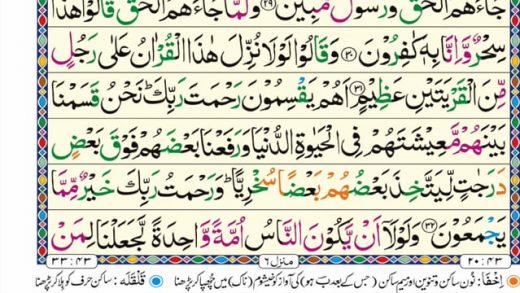 جَآءَهُمُ الْحَقُّ وَرَسُوْلٌ مُّبِيْنٌ ﴿۲۹﴾ وَلَمَّا جَآءَهُمُ الْحَقُّ قَالُوْا هٰذَا
سِحْرٌ وَّاِنَّا بِهٖ كٰفِرُوْنَ ﴿۳۰﴾ وَقَالُوْا لَوْلَا نُزِّلَ هٰذَا الْقُرْاٰنُ عَلٰى رَجُلٍ
مِّنَ الْقَرْيَتَيْنِ عَظِيْمٍ ﴿۳۱﴾ اَهُمْ يَقْسِمُوْنَ رَحْمَتَ رَبِّكَ ؕ نَحْنُ قَسَمْنَا
بَيْنَهُمْ مَّعِيْشَتَهُمْ فِى الْحَيٰوةِ الدُّنْيَا وَرَفَعْنَا بَعْضَهُمْ فَوْقَ بَعْضٍ
دَرَجٰتٍ لِّيَتَّخِذَ بَعْضُهُمْ بَعْضًا سُخْرِيًّا ؕ وَرَحْمَتُ رَبِّكَ خَيْرٌ مِّمَّا
يَجْمَعُوْنَ ﴿۳۲﴾ وَلَوْلَاۤ اَنْ يَّكُوْنَ النَّاسُ اُمَّةً وَّاحِدَةً لَّجَعَلْنَا لِمَنْ
۲۰:۴۳ منزل ۶ ۳۳:۴۳
اِخفَا: نُون ساکن و تنوین اور میم ساکن (جس کے بعد ب ہو) کی آواز کو خیشوم (ناک) میں چھپا کر پڑھنا قَلقَلَہ: ساکن حرف کو ہلا کر پڑھنا